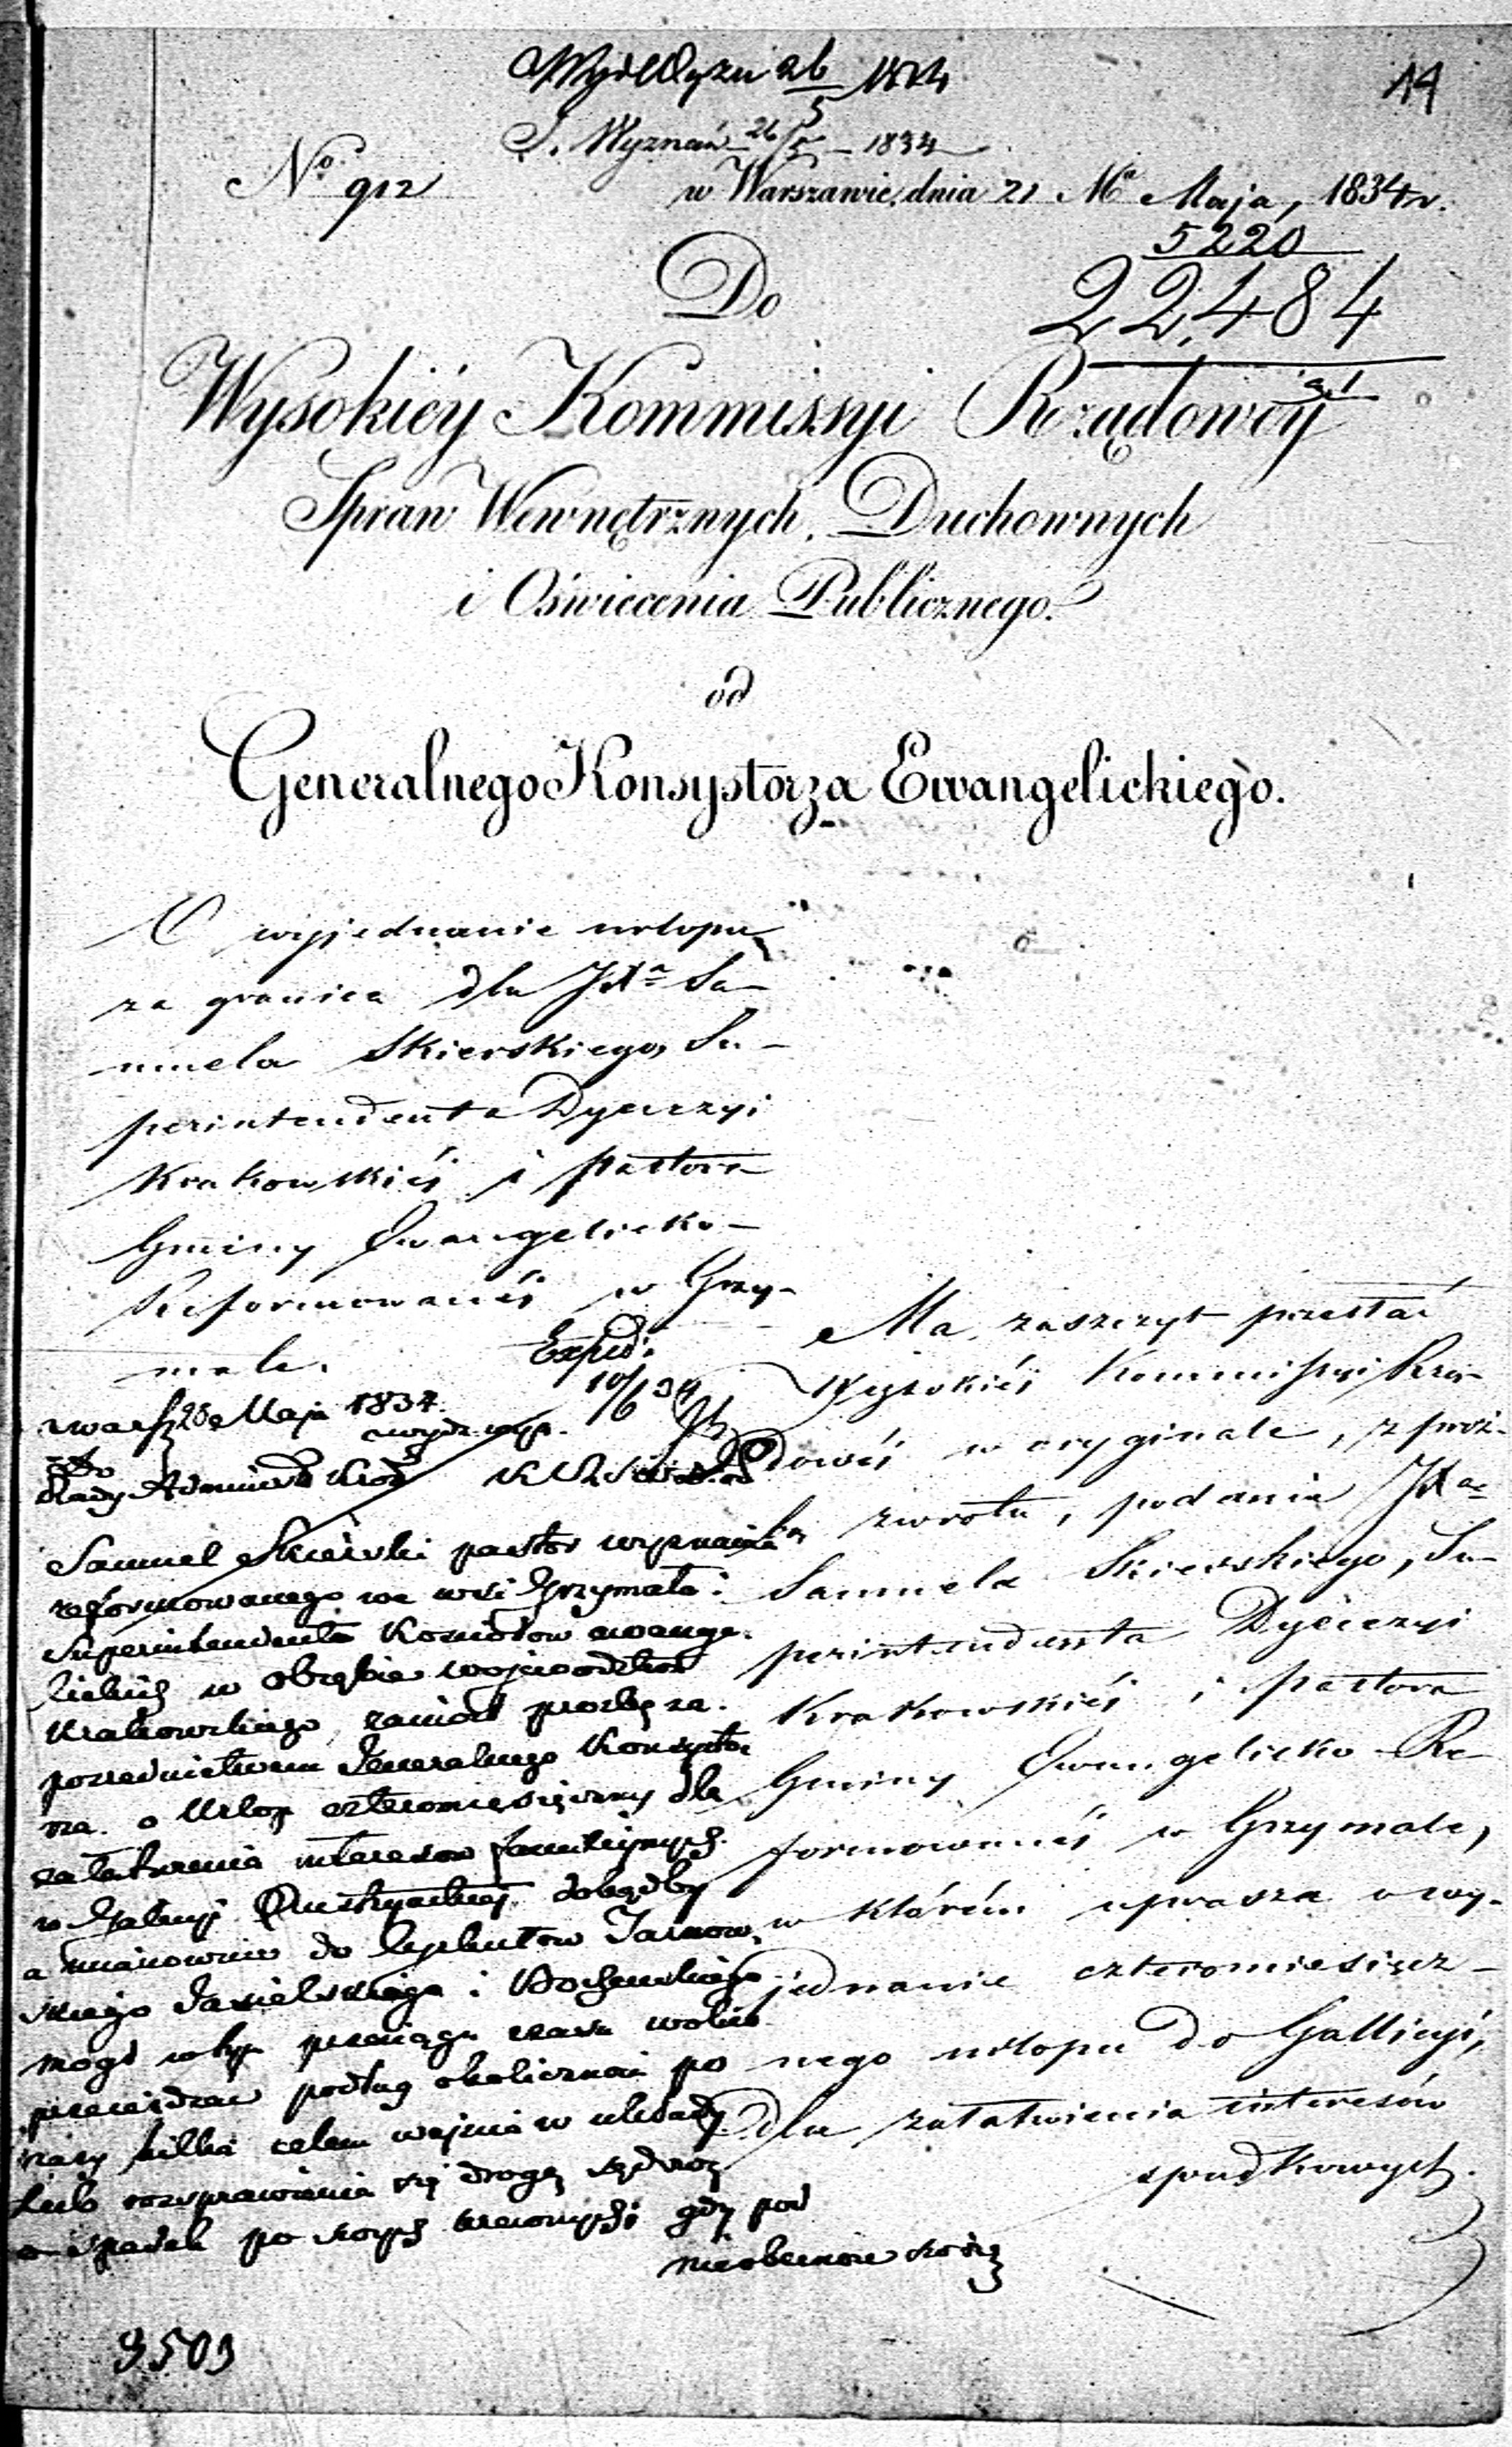 26/5 1834
14
S. Wyznań 26/5 – 1834
No 912
w Warszawie, dnia 21 Ma Maja, 1834 r.
5220
22,484
Do
Wysokiéy Kommissyi Rządowéy
Spraw Wewnętrznych, Duchownych
i Oświecenia Publicznego.
od
Generalnego Konsystorza Ewangelickiego.
O wyjednanie urlopu
za granicę dla JXa Sa-
muela Skierskiego, Su-
perintendenta Dyecezyi
Krakowskiéj i Pastora
Gminy Ewangelicko-
Reformowanéj w Grzy-
male.
Ma zaszczyt przesłać
Wysokiéj Kommissyi Rzą-
dowéj w oryginale, z proź-
bą zwrotu, podanie JXa
Samuela Skierskiego, Su-
perintendenta Dyecezyi
Krakowskiéj i Pastora
Gminy Ewangelicko-Re-
formowanéj w Grzymale,
w którém uprasza o wy-
jednanie czteromiesięcz-
nego urlopu do Gallicyi,
dla załatwienia interesów
spadkowych.
Exped:
10/6 34
w Warsz 28 Maja 1834.
do
Rady Administ Król
Samuel Skierski pastor wyznania
reformowanego we wsi Grzymała i
Superintendenta Kościołów ewange-
lickich w obrębie województwa
Krakowskiego, zaniósł prośbę za
pośrednictwem Jeneralnego Konsysto-
rza o Urlop czteromiesięczny dla
załatwienia interesów familijnych
w Galicyi Austryackiej dokądby
a mianowicie do Cyrkułów Tarnow-
skiego Jasielskiego i Bocheńskiego
mógł w tym przeciągu czasu wolno
przejeżdżać podług okoliczności po
razy kilka celem wejścia w układy
lub rozprawienia się drogą sądową
o spadek po
gdy pod
nieobecność
9503